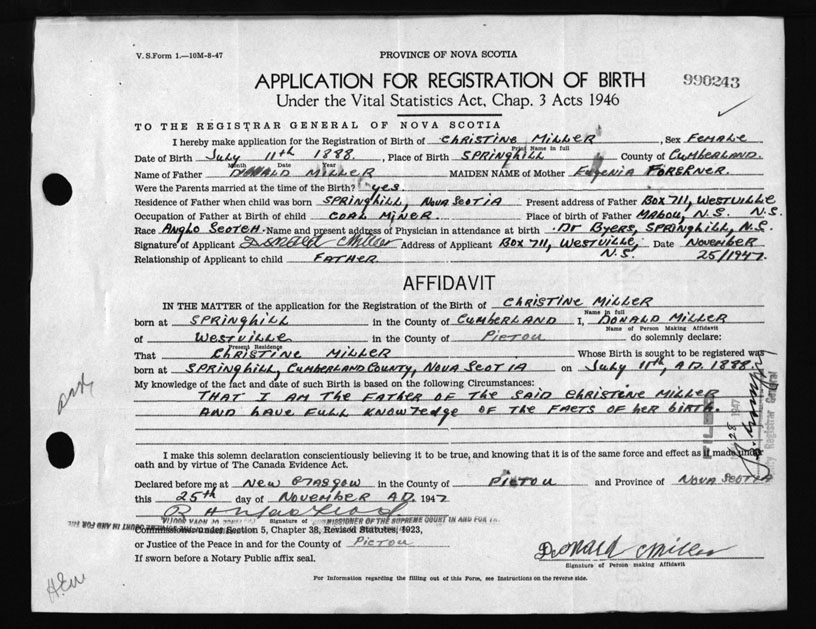 V. S. Form 1.—10M-8-47
PROVINCE OF NOVA SCOTIA
APPLICATION FOR REGISTRATION OF BIRTH
990243
Under the Vital Statistics Act, Chap. 3 Acts 1946
TO THE REGISTRAR GENERAL OF NOVA SCOTIA
I hereby make application for the Registration of Birth of CHRISTINE MILLER, Sex FEMALE
Print Name in full
Date of Birth July 11th 1888, Place of Birth SPRINGHILL County of CUMBERLAND.
Month Date Year
Name of Father DONALD MILLER MAIDEN NAME of Mother EUGENIA
Were the Parents married at the time of the Birth? yes.
Residence of Father when child was born SPRINGHILL, NOVA SCOTIA Present address of Father BOX 711, WESTVILLE N.S.
Occupation of Father at Birth of child COAL MINER. Place of birth of Father MABOU, N.S.
Race ANGLO SCOTCH. Name and present address of Physician in attendance at birth DR BYERS, SPRINGHILL, N.S.
Signature of Applicant Donald Miller Address of Applicant BOX 711, WESTVILLE, N.S. Date NOVEMBER 25/1947.
Relationship of Applicant to child FATHER
AFFIDAVIT
IN THE MATTER of the application for the Registration of the Birth of CHRISTINE MILLER
Name in full
born at SPRINGHILL in the County of CUMBERLAND I, DONALD MILLER
Name of Person Making Affidavit
of WESTVILLE in the County of PICTOU do solemnly declare:
Present Residence
That CHRISTINE MILLER Whose Birth is sought to be registered was
born at SPRINGHILL, CUMBERLAND COUNTY, NOVA SCOTIA on July 11th, A.D. 1888.
My knowledge of the fact and date of such Birth is based on the following Circumstances:
THAT I AM THE FATHER OF THE SAID CHRISTINE MILLER
AND HAVE FULL KNOWLEDGE OF THE FACTS OF HER BIRTH.
FILED
28 1947
Registrar General
I make this solemn declaration conscientiously believing it to be true, and knowing that it is of the same force and effect as if made under
oath and by virtue of The Canada Evidence Act.
Declared before me at NEW GLASGOW in the County of PICTOU and Province of NOVA SCOTIA
this 25th day of NOVEMBER A.D. 1947
Signature of
COMMISSIONER OF THE SUPREME COURT IN AND FOR
Commissioner under Section 5, Chapter 38, Revised Statutes, 1923,
or Justice of the Peace in and for the County of PICTOU
If sworn before a Notary Public affix seal.
Donald Miller
Signature of Person making Affidavit
For Information regarding the filling out of this Form, see Instructions on the reverse side.